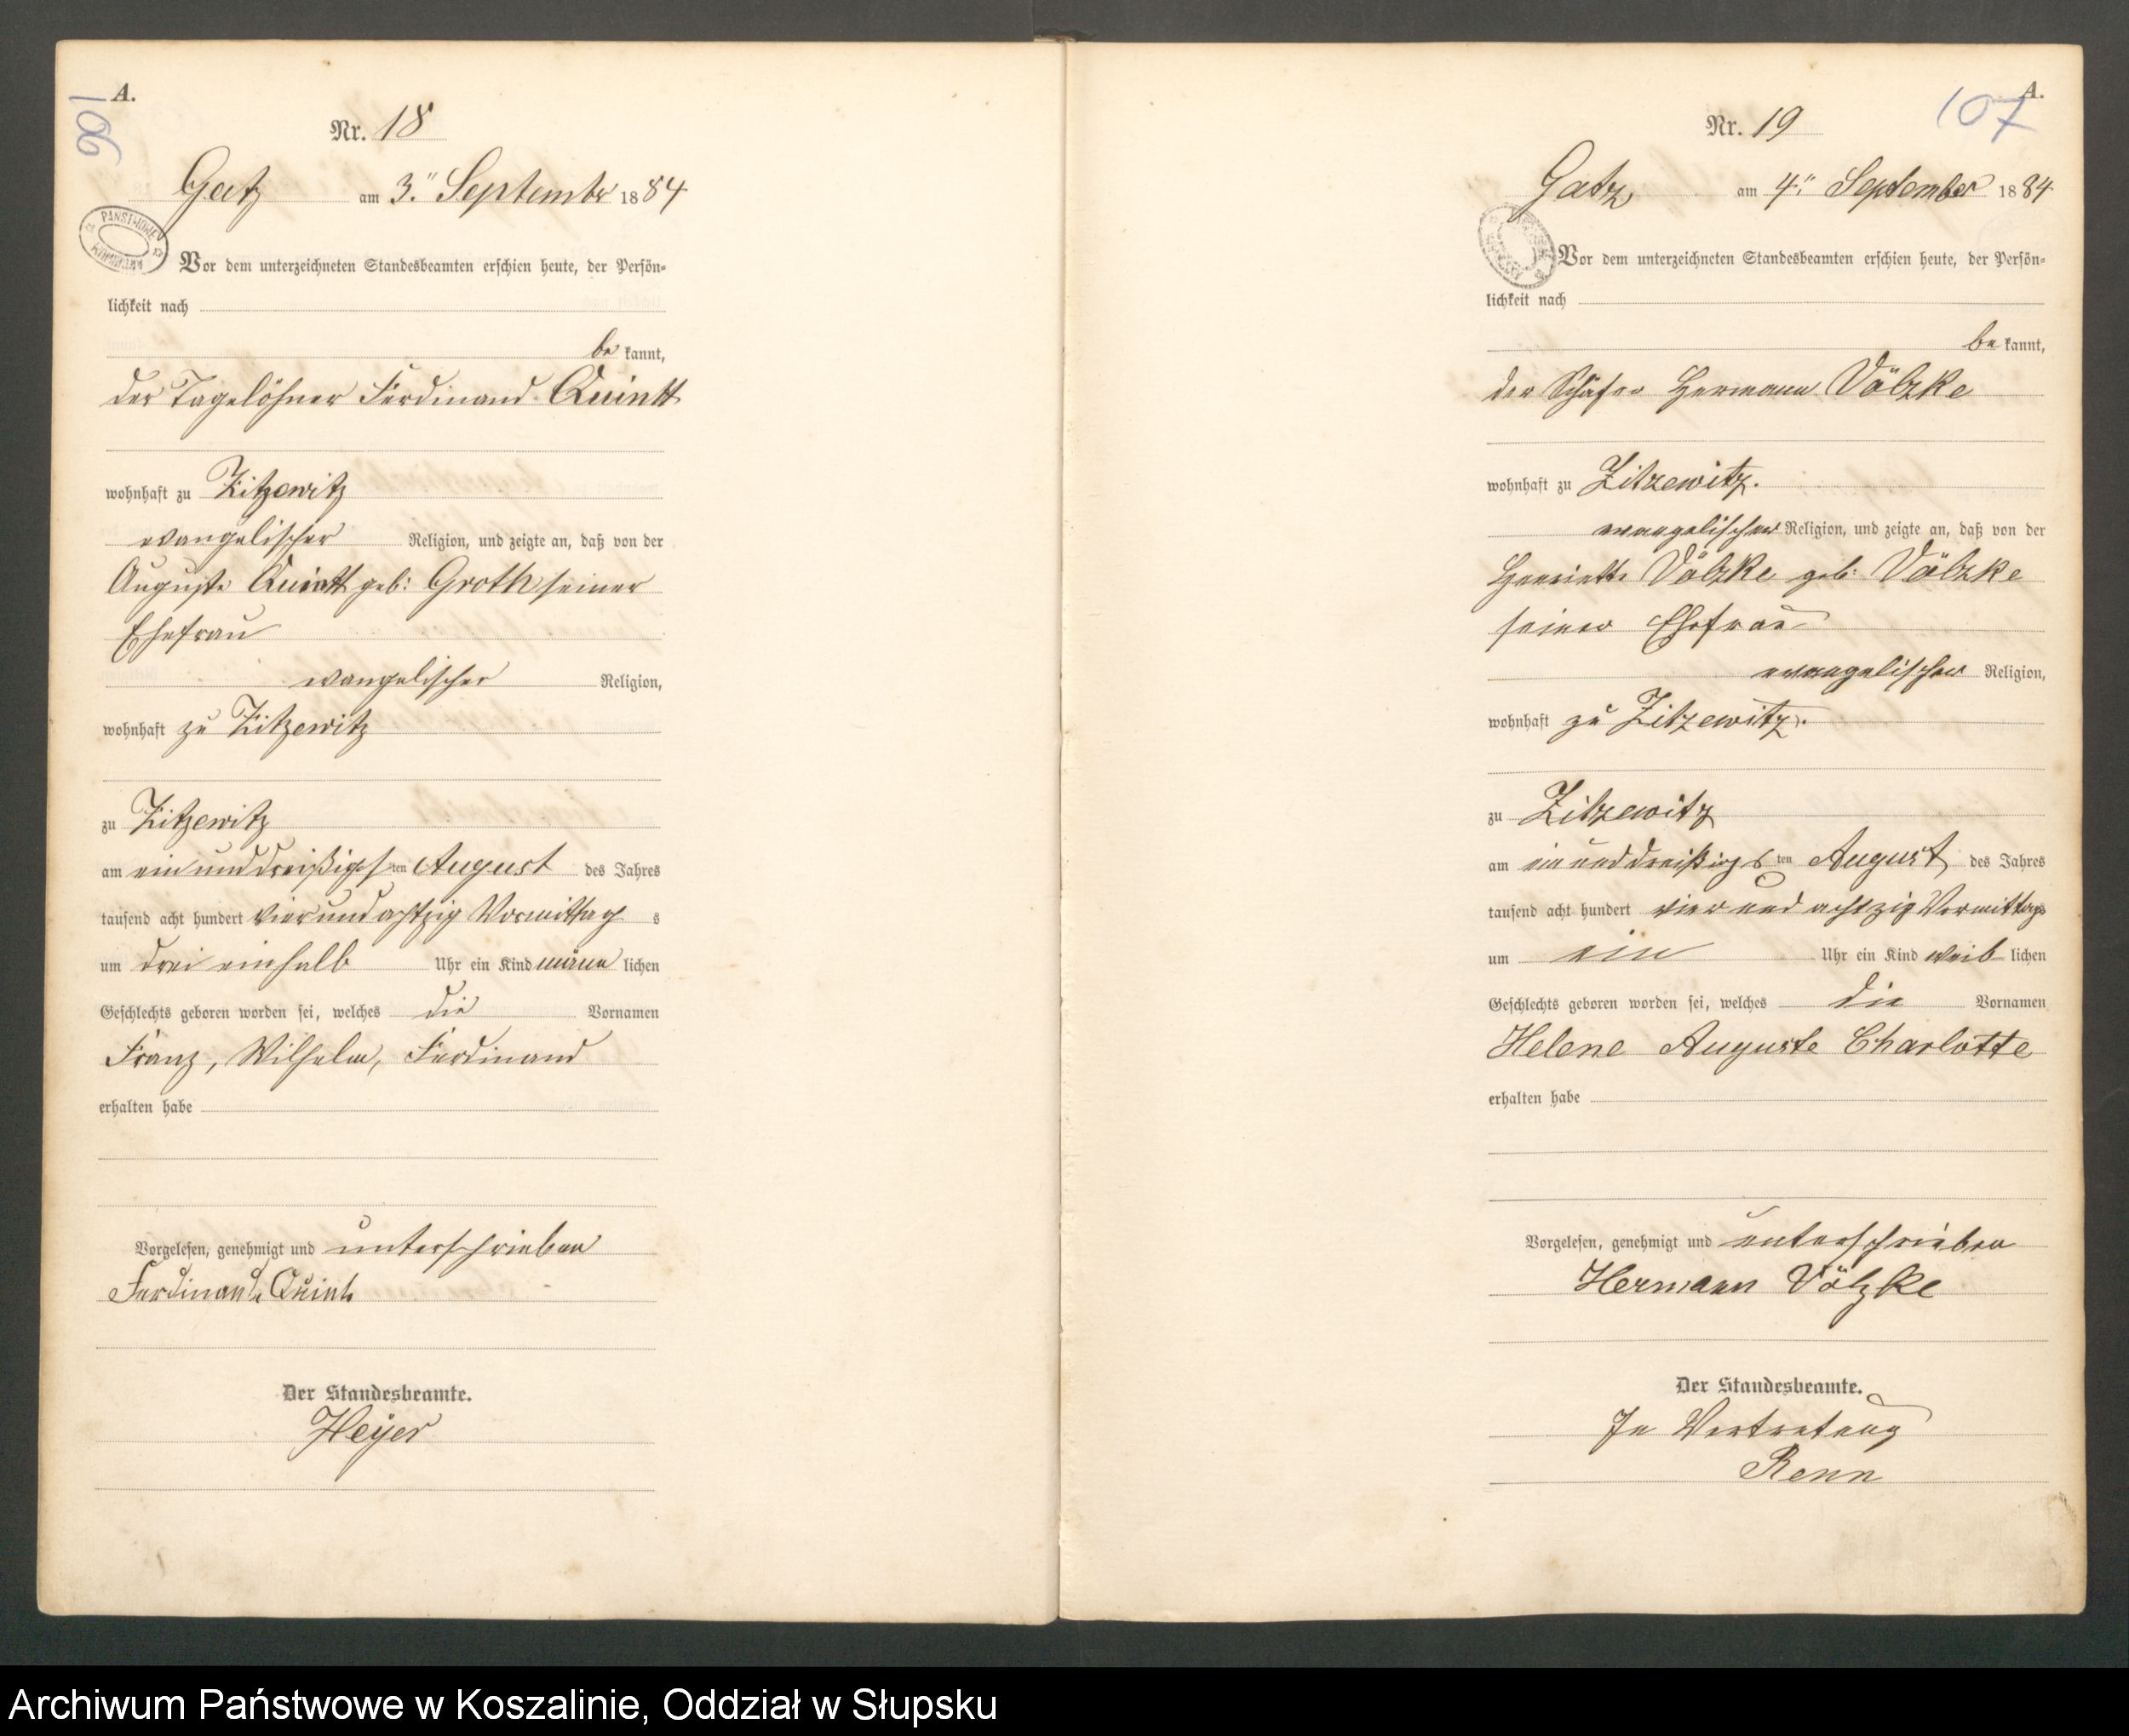 A.
106
Nr. 18
Gatz am 3.ⁿ September 1884
PAŃSTWOWE
ARCHIWUM
Vor dem unterzeichneten Standesbeamten erschien heute, der Persön-
lichkeit nach
be kannt,
der Tagelöhner Ferdinand Quintt
wohnhaft zu Zitzewitz
evangelischer Religion, und zeigte an, daß von der
Auguste Quintt geb: Groth seiner
Ehefrau
evangelischer Religion,
wohnhaft zu Zitzewitz
zu Zitzewitz
am ein und dreißigsten August des Jahres
tausend acht hundert vier und achtzig Vormittag s
um drei einhalb Uhr ein Kind männ lichen
Geschlechts geboren worden sei, welches die Vornamen
Franz, Wilhelm, Ferdinand
erhalten habe
Vorgelesen, genehmigt und unterschrieben
Ferdinand Quint
Der Standesbeamte.
Heyer
A.
107
Nr. 19
Gatz am 4.ⁿ September 1884
Vor dem unterzeichneten Standesbeamten erschien heute, der Persön-
lichkeit nach
be kannt,
der Schäfer Hermann Völzke
wohnhaft zu Zitzewitz.
evangelischer Religion, und zeigte an, daß von der
Henriette Völzke geb. Völzke
seiner Ehefrau
evangelischer Religion,
wohnhaft zu Zitzewitz.
zu Zitzewitz
am ein und dreißigsten August des Jahres
tausend acht hundert vier und achtzig Vormittags
um ein Uhr ein Kind weib lichen
Geschlechts geboren worden sei, welches die Vornamen
Helene Auguste Charlotte
erhalten habe
Vorgelesen, genehmigt und unterschrieben
Hermann Völzke
Der Standesbeamte.
In Vertretung
Renn
Archiwum Państwowe w Koszalinie, Oddział w Słupsku